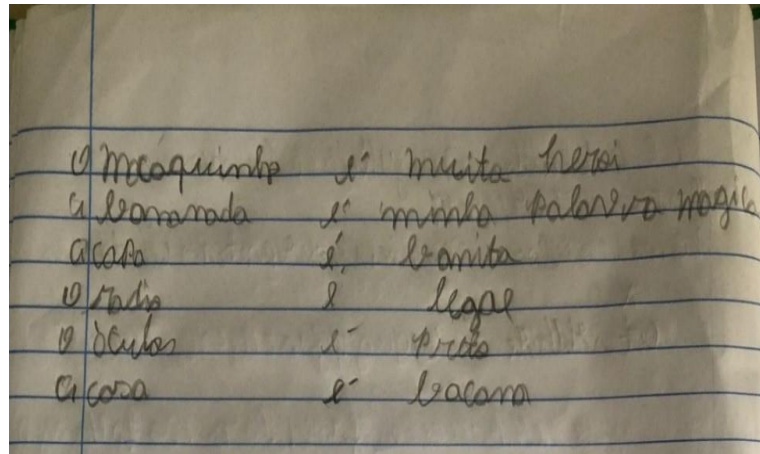 O macaquinho é muita heroi
a bananada é minha palavra magica
a capa é bonita
O radio e legal
O óculos é preto
a casa é bacana